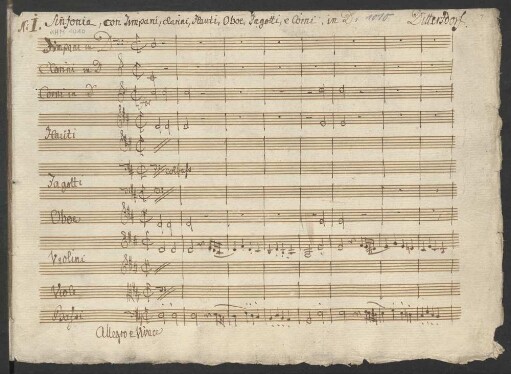 N: 1. Sinfonia, con Timpani, Clarini, Flauti, Oboe, Fagotti, e Corni, in D: Dittersdorf.
Timpani in D
Clarini in D
Corni in D
Flauti
Fagotti
Oboe
Violini
Viole
Bassi
Allegro e Vivace